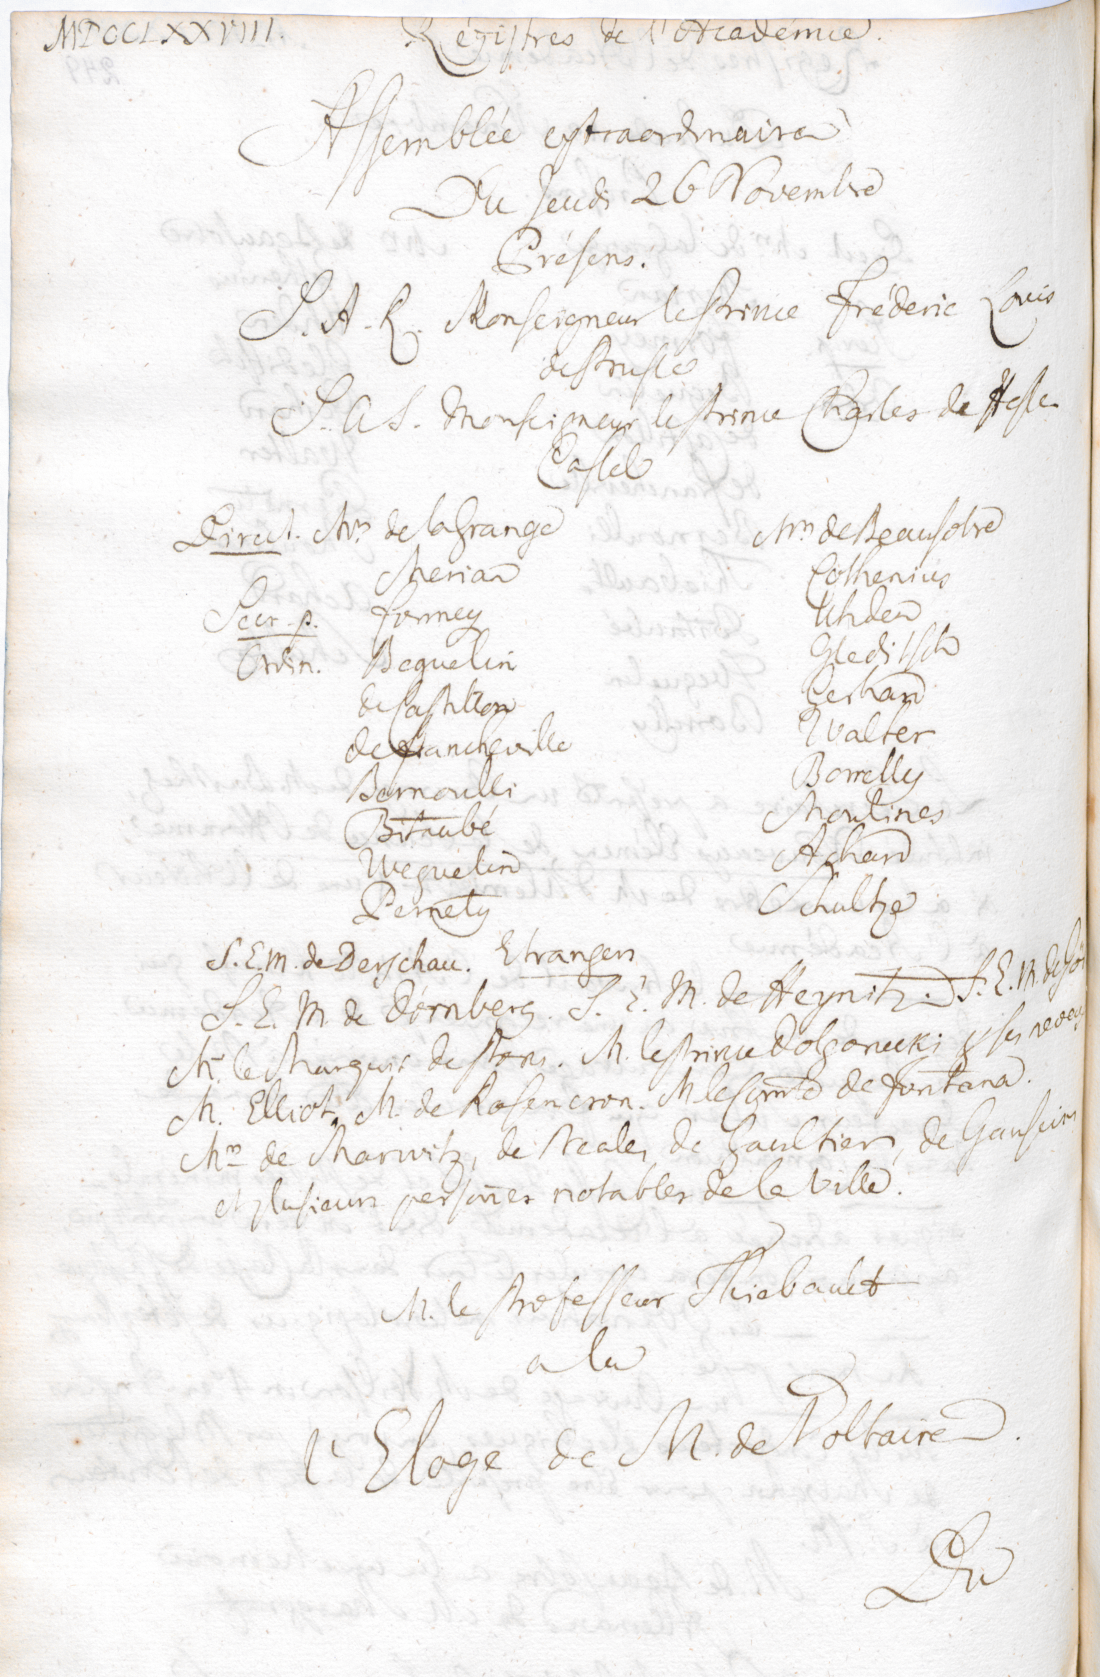 MDCCLXXVIII.
Régistres de l'Académie.
Assemblée extraordinaire
Du Jeudi 26 Novembre
Présens.
S. A. R. Monseigneur le Prince Fréderic Louis
de Prusse
S. A. S. Monseigneur le Prince Charles de Hesse
Cassel
Direct. Mrs de la Grange
Merian
Secr. p. Formey
Ordin. Beguelin
de Castillon
de Francheville
Bernoulli
Bitaubé
Weguelin
Pernety
Mrs de Beausobre
Cothenius
Uhden
Gleditsch
Gerhard
Walter
Borrelly
Moulines
Achard
Schultze
S. E. M. de Derschau. Etrangers
S. E. M. de Dörnberg. S. E. M. de Heynitz. S. E. M. de
Mr. le Marquis de Pons. M. le Prince Dolgorucki & ses neveux
M. Elliot, M. de Rosencron. M. le Comte de Fontana.
Mrs de Marwitz, de Neale, de Gaultier, de
et plusieurs persones notables de la Ville.
M. le Professeur Thiebault
a lu
l'Eloge de M. de Voltaire.
Du